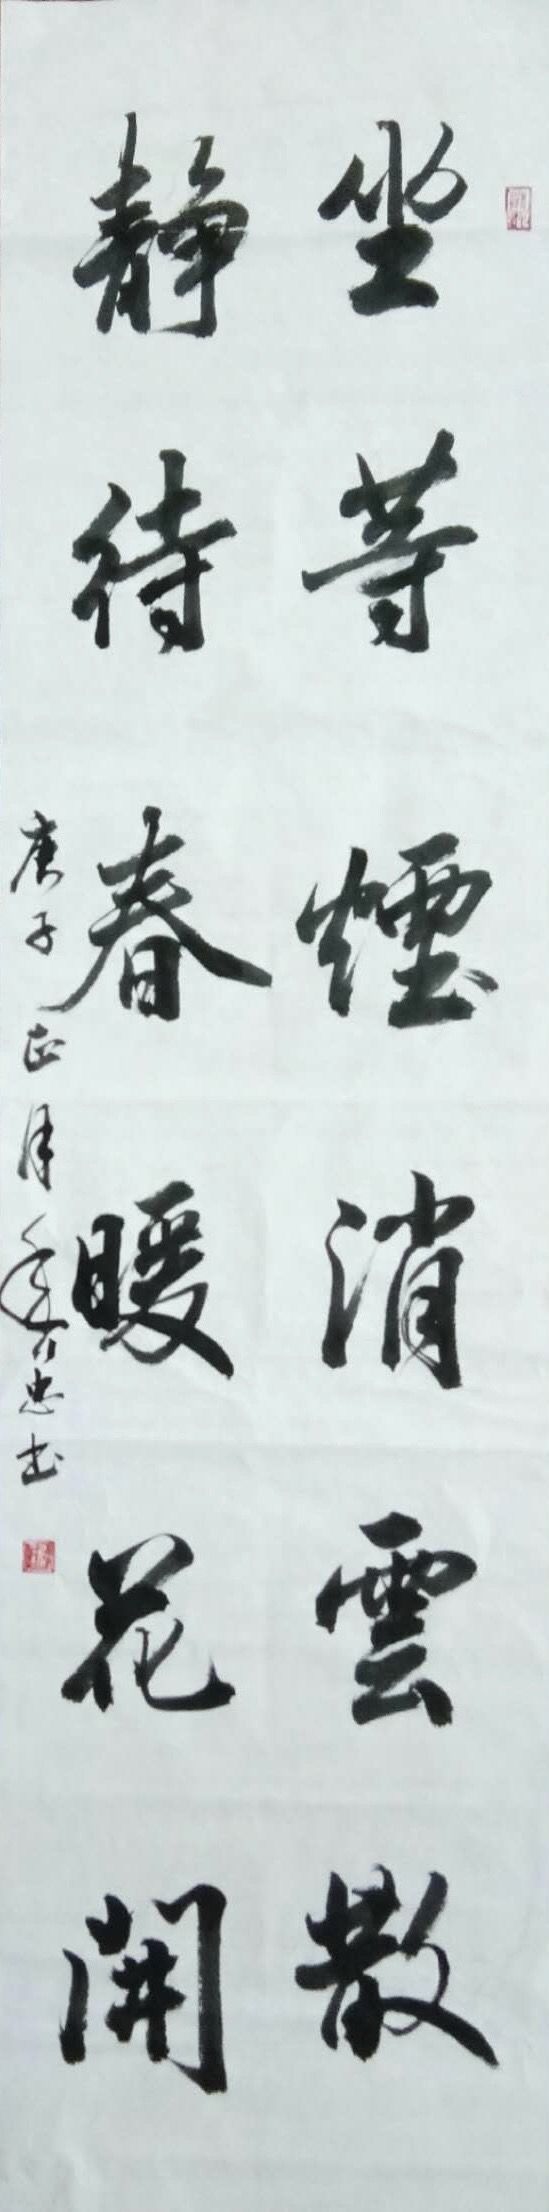 坐等煙消雲散
静待春暖花開
庚子正月
忠书